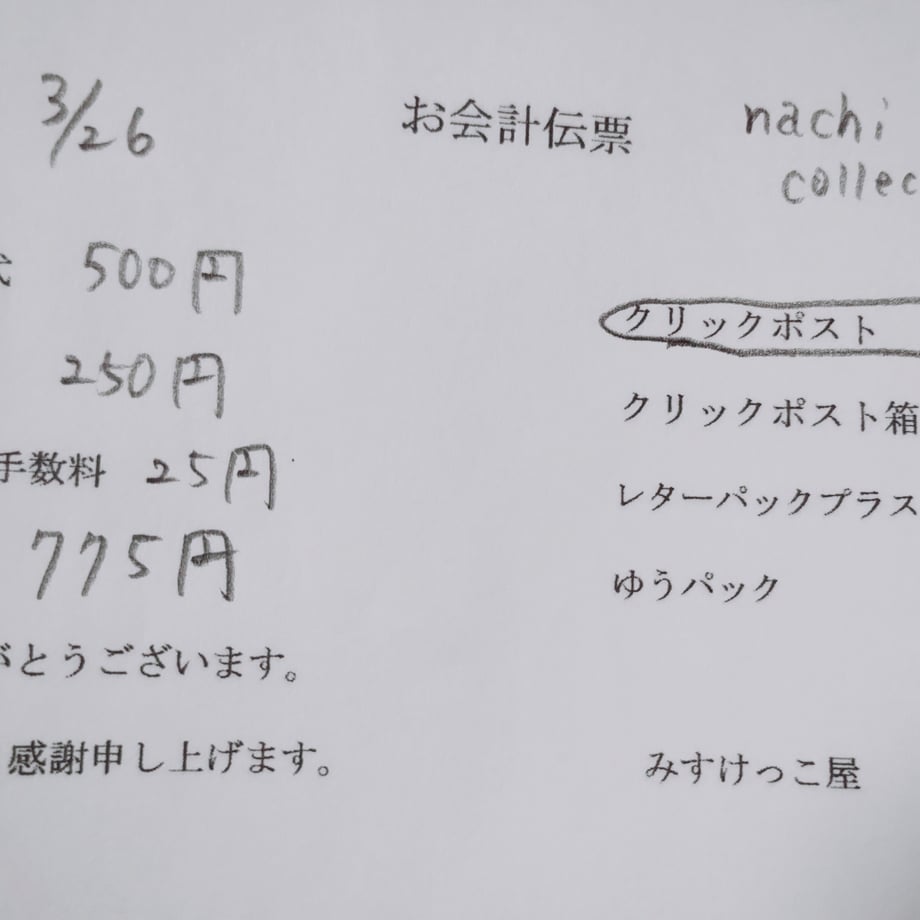 3/26
お会計伝票
nachi
collec
500円
250円
手数料 25円
775円
がとうございます。
感謝申し上げます。
クリックポスト
クリックポスト箱
レターパックプラス
ゆうパック
みすけっこ屋